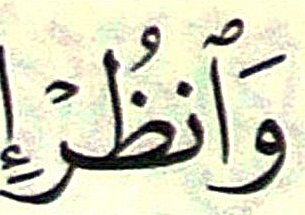 وَٱنظُرْ إِ